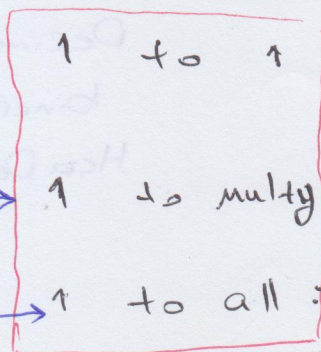 1 to 1
1 to multy
1 to all :